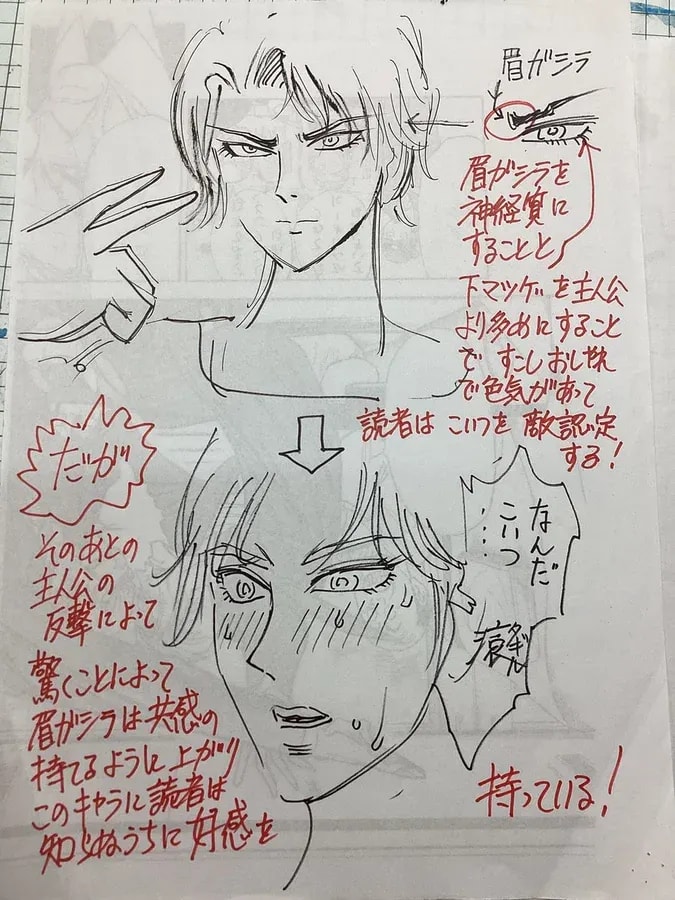 眉がシラ
眉がシラを
神経質に
することと
下マツゲを主人公
より多めにすること
で すこしおしゃれ
で色気があって
読者は こいつを 敵認定
する!
だが
そのあとの
主人公の
反撃によって
驚くことによって
眉がシラは共感の
持てるように上がり
このキャラに読者は
知らぬうちに好感を
持っている!
なんだ
こいつ
…